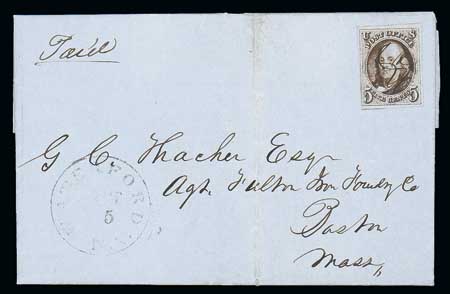 Paid
POST OFFICE
5 FIVE CENTS 5
G C. Thacher Esqr
Agt. Fulton Iron Foundry Co
Boston
Mass,,
5